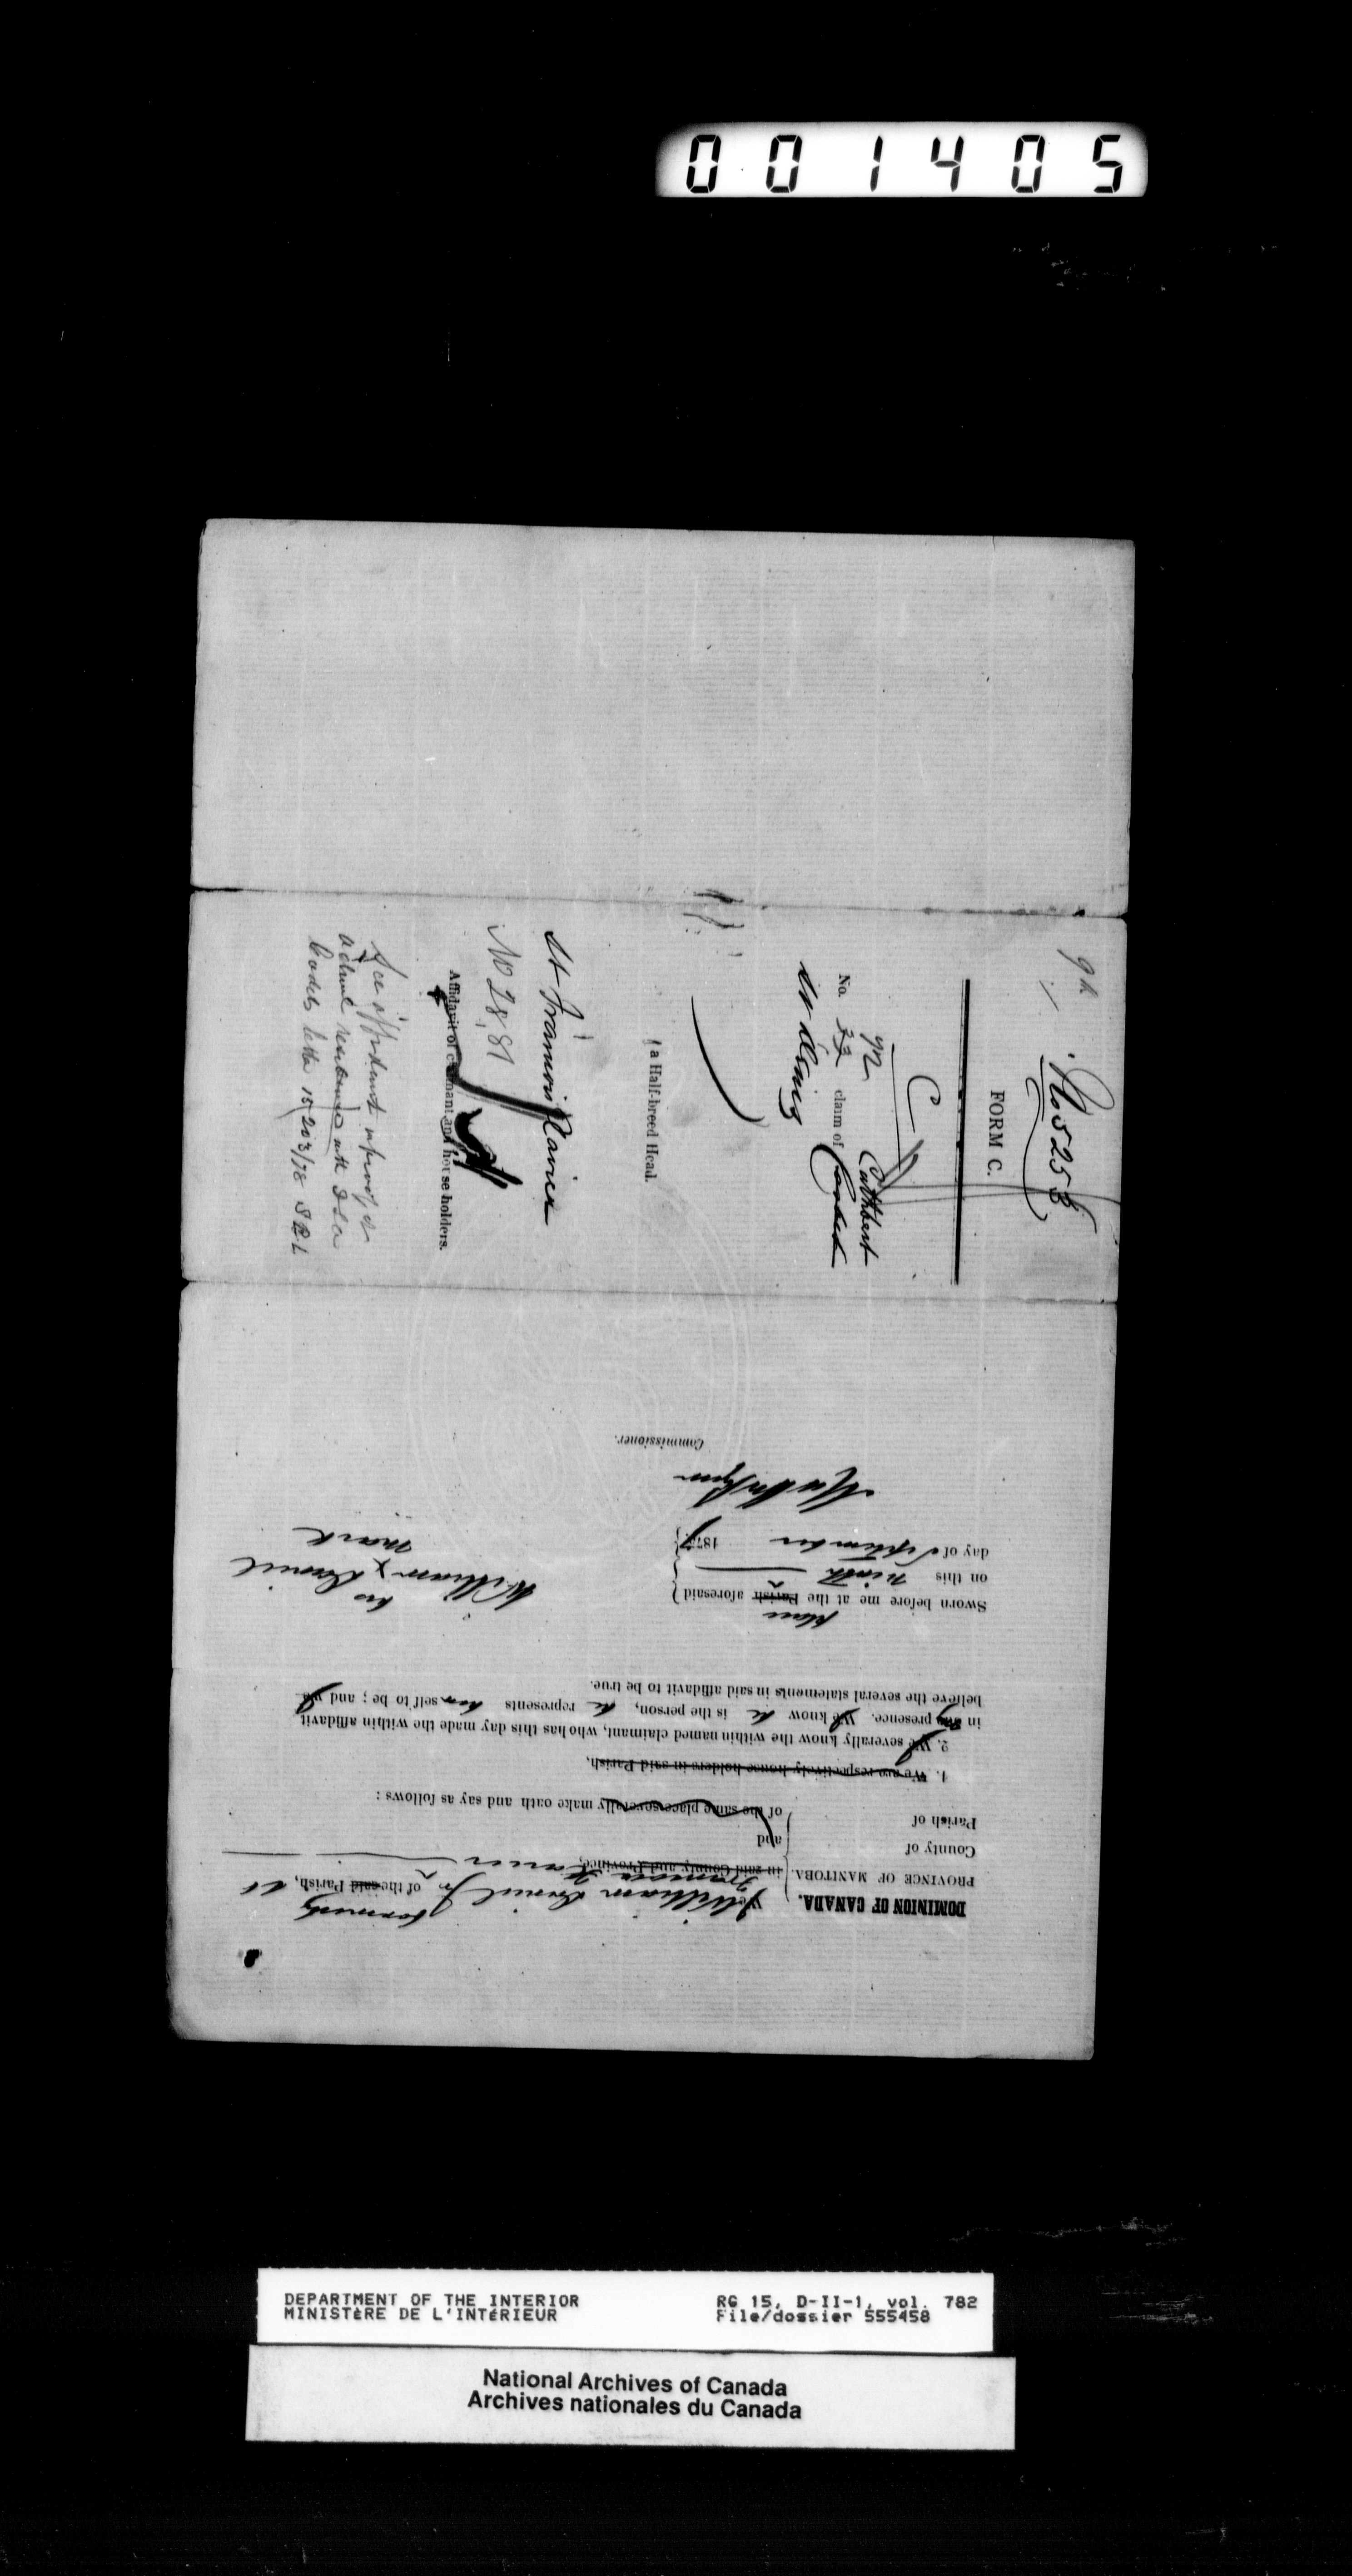 001405
9h
No 525
FORM C.
C
92 Cuthbert
No. 33 claim of
St. Denis
(a Half-breed Head.
St François Xavier
No 28,81
Affidavit of claimant and house holders.
See affidavit in proof of
actual residence with
letter 15203/78
DOMINION OF CANADA.
PROVINCE OF MANITOBA.
County of
Parish of
I William Daniel Jr. formerly of the said Parish, St
François Xavier
in said County and Province,
and
of the same place severally make oath and say as follows :
1. We are respectively house holders in said Parish,
2. We I severally know the within named claimant, who has this day made the within affidavit
in our my presence. We I know he is the person, he represents him self to be ; and we I
believe the several statements in said affidavit to be true.
Sworn before me at the Parish place aforesaid
on this ninth
day of September 1877
his
William x Daniel
mark
Commissioner.
DEPARTMENT OF THE INTERIOR
MINISTÈRE DE L'INTÉRIEUR
RG 15, D-II-1, vol. 782
File/dossier 555458
National Archives of Canada
Archives nationales du Canada